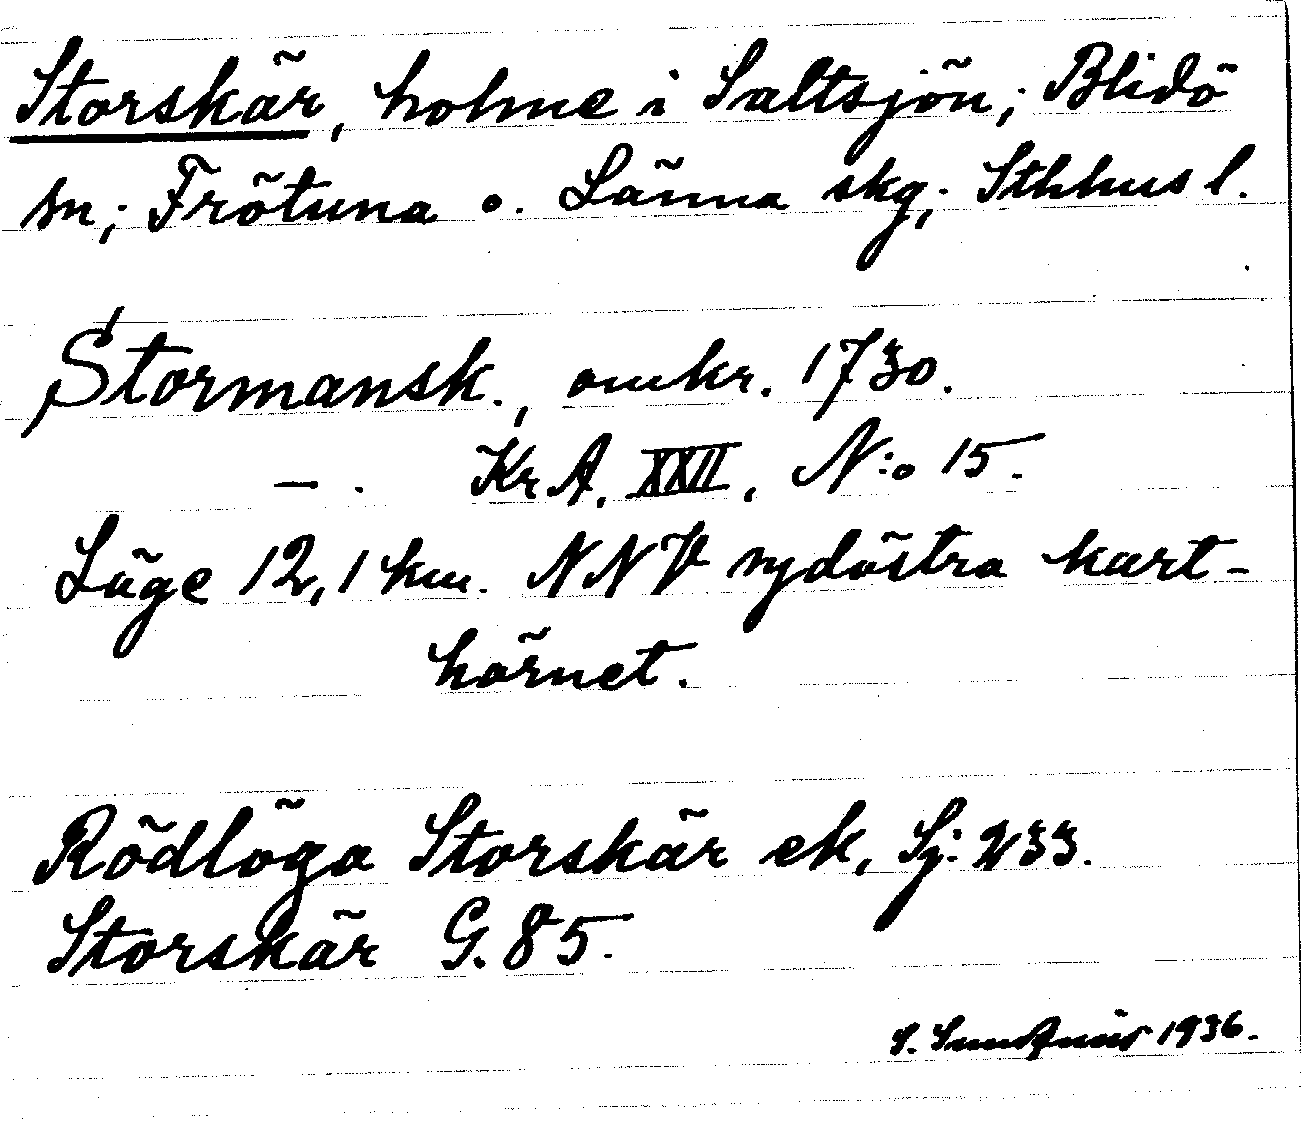 Storskär, holme i Saltsjön; Blidö
sn; Frötuna o. Länna skg; Sthhus l.
Stormansk., omkr. 1730.
— . Kr A. XXII, N:o 15.
Läge 12,1 km. NNV sydöstra kart-
hörnet.
Rödlöga Storskär ek, Sj: 233.
Storskär G. 85.
S. 1936.